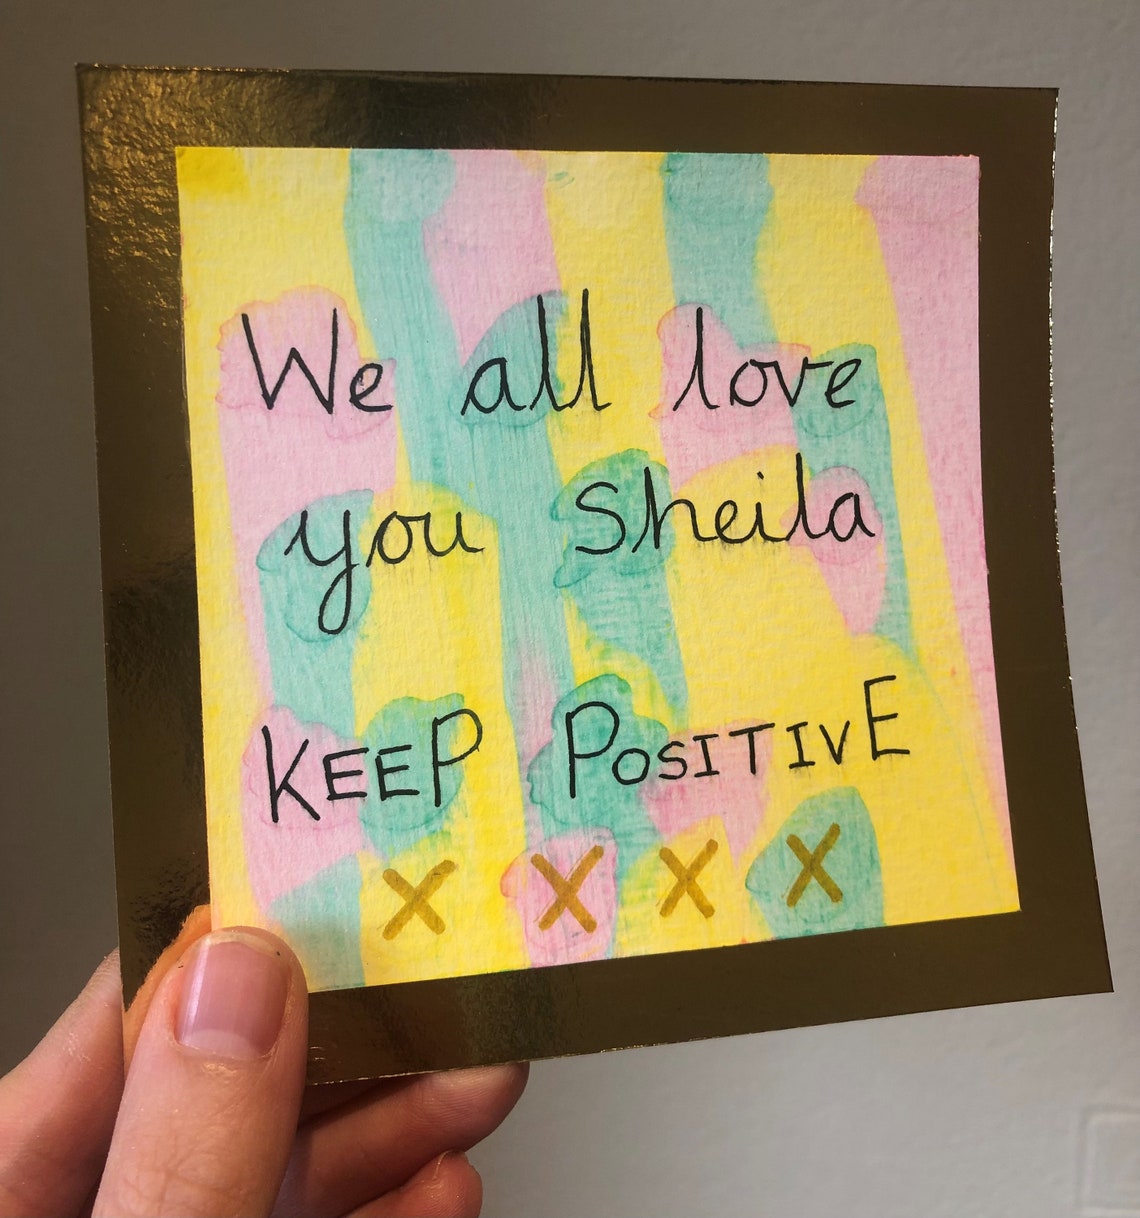 We all love
you Sheila
KEEP POSITIVE
X X X X